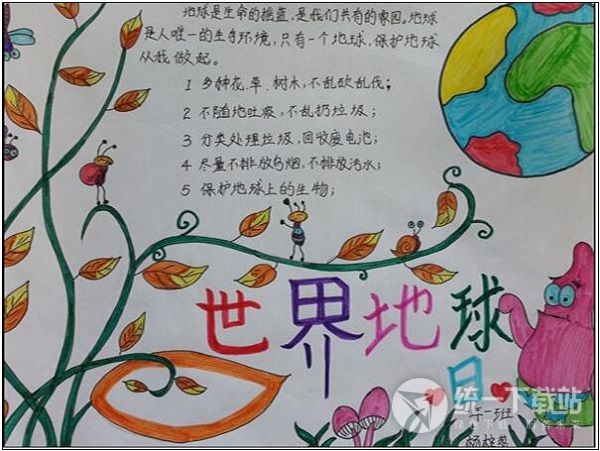 地球是生命的摇蓝，是我们共有的家园。地球
是人唯一的生存环境，只有一个地球，保护地球
从我做起。
1 多种花、草、树木，不乱砍乱伐；
2 不随地吐痰，不乱扔垃圾；
3 分类处理垃圾，回收废电池；
4 尽量不排放乌烟，不排放污水；
5 保护地球上的生物；
世界地球
日
一班
统一下载站